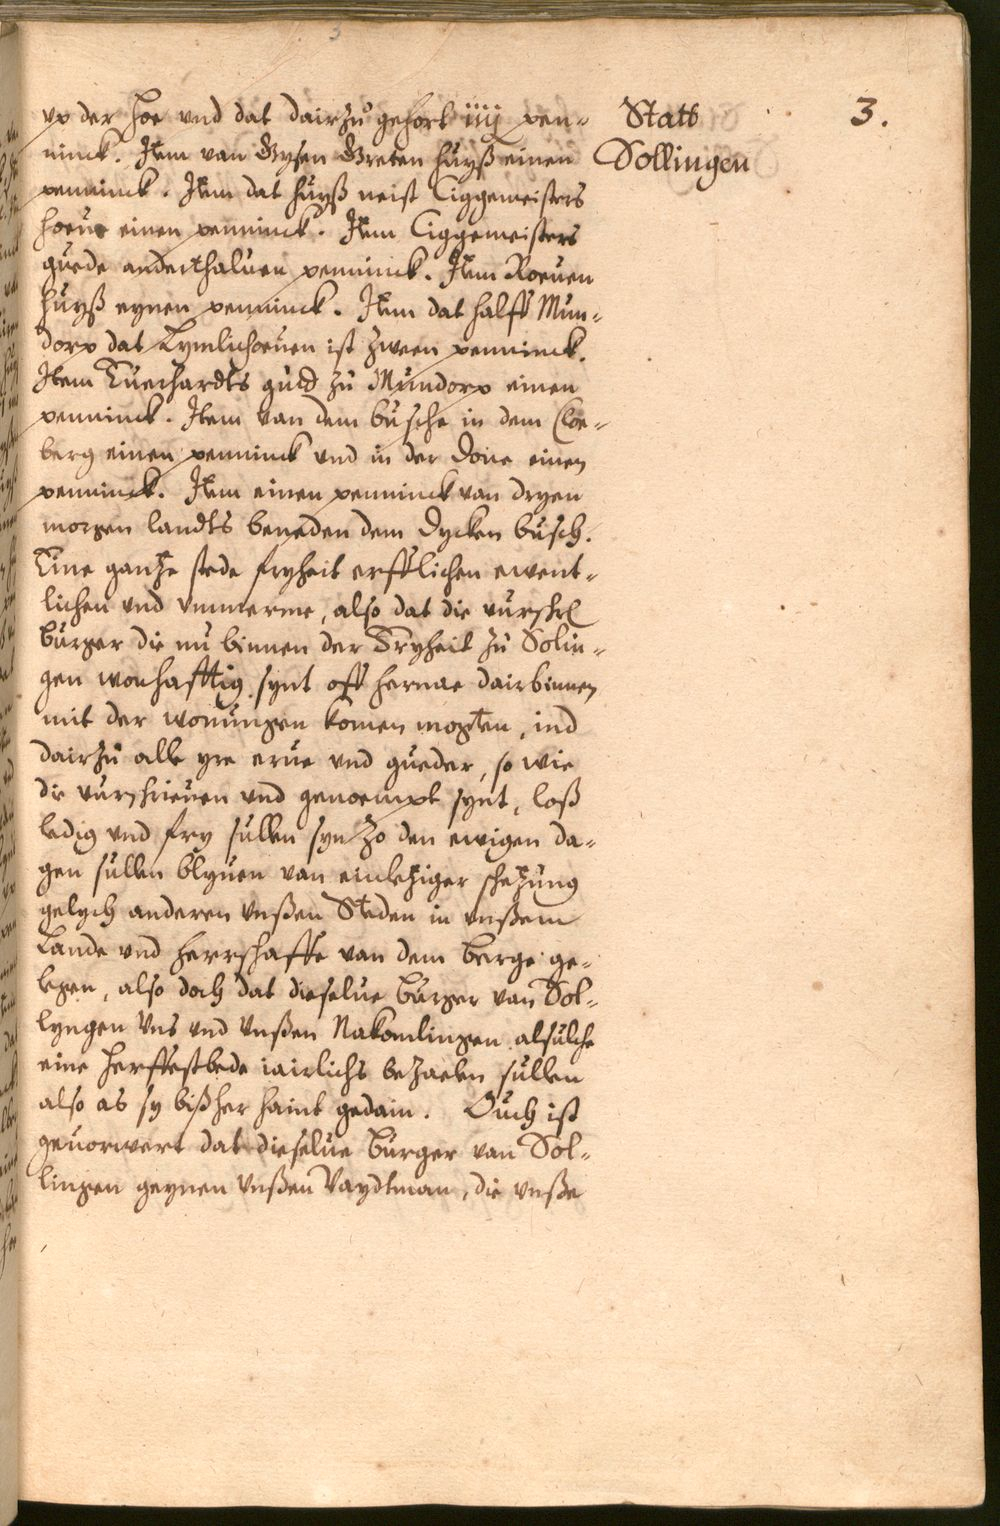 3.
Statt
Sollingen
vp der hoe vnd dat dairzů gehort iiij pen-
ninck. Item van Gysen Greten huyß einen
penninck. Item dat huyß neist Ciggemeisters
hoeue einen penninck. Item Ciggemeisters
guede anderthaluen penninck. Item Roeuen
huyß eynen penninck. Item dat halff Mun-
dorp dat ist zween penninck.
Item guld zů Mundorp einen
penninck. Item van dem busche in dem Cloe-
berg einen penninck vnd in der Done einen
penninck. Item einen penninck van dryen
morgen landts beneden dem Dycken busch.
Eine gantze stede fryheit erfflichen ewent-
lichen vnd vmmerme, also dat die vurschr
Burger die nu binnen der Fryheit zů Solin-
gen wonhafftig synt off hernae dairbinnen
mit der wonungen komen mogten, ind
dairzů alle yre erue vnd gueder, so wie
die vurschrieuen vnd genoempt synt, loß
ledig vnd fry sullen syn zo den ewigen da-
gen sullen blyuen van schetzung
gelych anderen vnßen Steden in vnßem
Lande vnd herrschaffte van dem Berge ge-
legen, also doch dat dieselue Burger van Sol-
lyngen Vns vnd Vnßen Nakomlingen alsulche
eine herffstbede iairlichs bezaelen sullen
also as sy bißher haint gedain. Ouch ist
geuorwert dat dieselue Burger van Sol-
lingen geynen Vnßen Vaydtman, die vnße